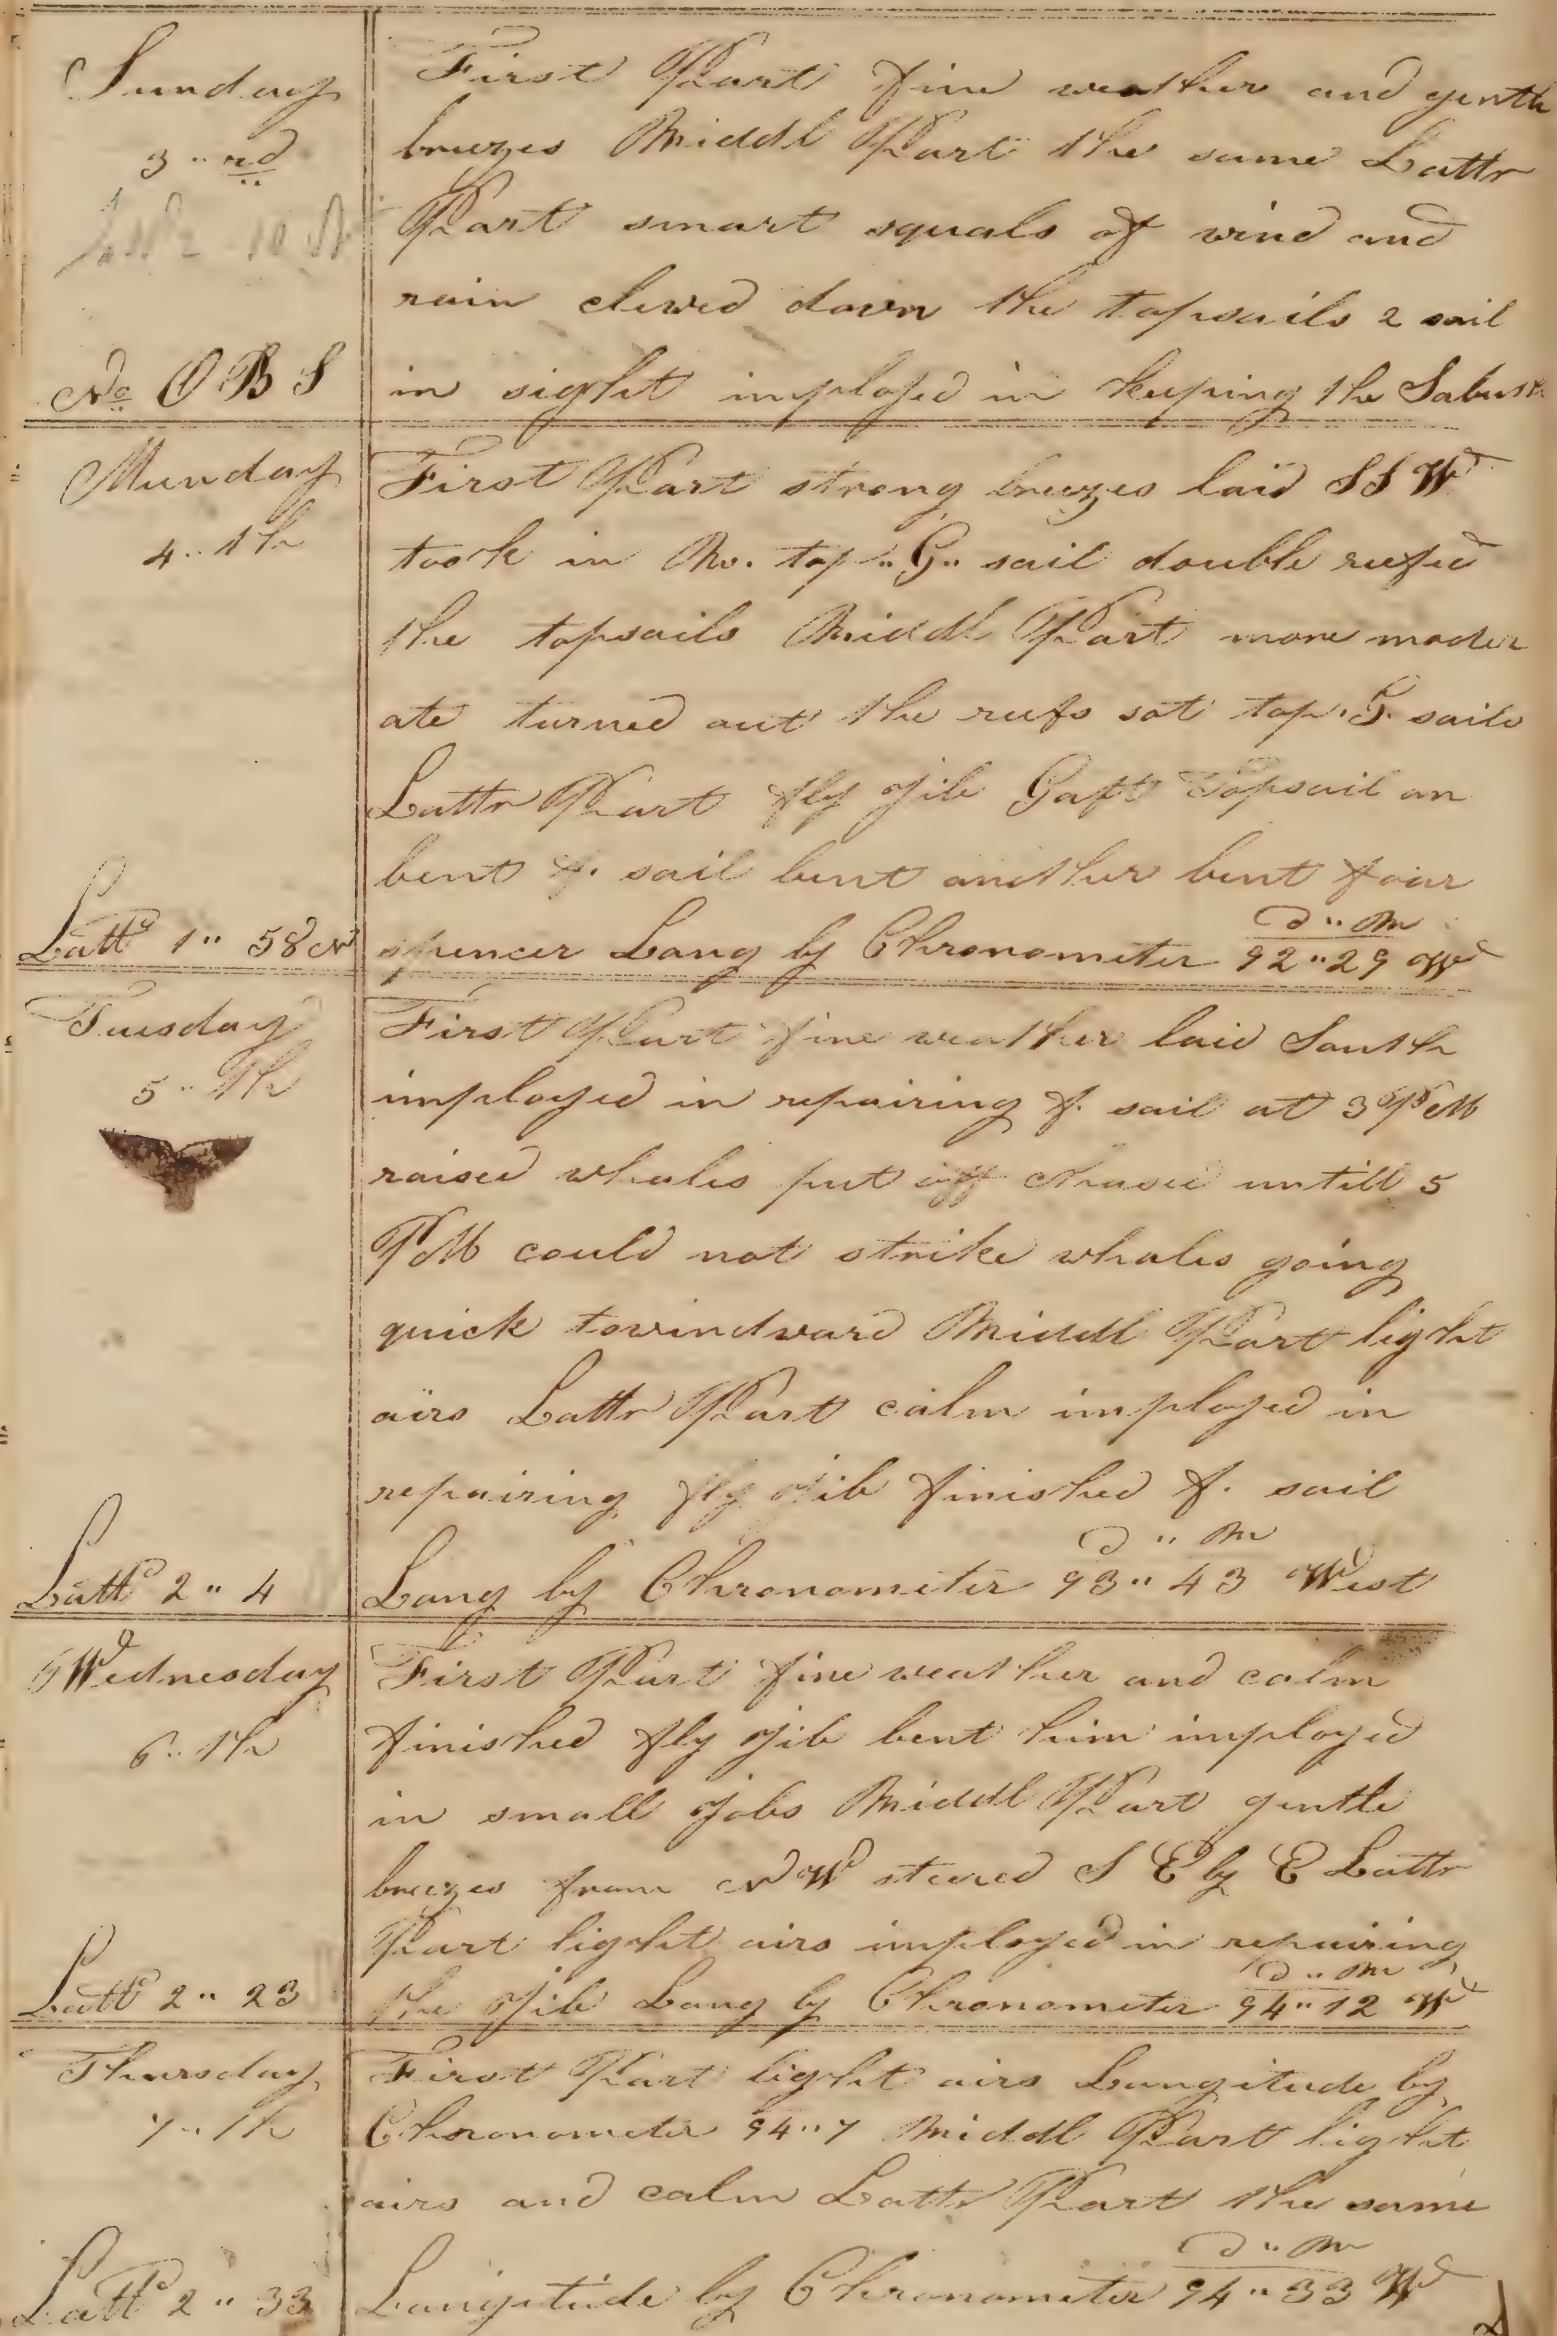 Sunday
3 .. rd
No O B S
First Part fine weather and gentle
breezes Middl Part the same Lattr
Part smart squals of wind and
rain clewed down the topsails 2 sail
in sight imployed in keeping the Sabath
Munday
4 .. th
Lattd 1 " 58 N
First Part strong breezes laid S S W
took in M. top .. G .. sail double reefed
the topsails Middl Part more moder
ate turned out the reefs sot top. G. sails
Lattr Part fly Jib Gaft Topsail un
bent f. sail bent another bent foar
spencer Long by Chronometer D " M 92 " 29 W
Tuesday
5 .. th
Lattd 2 " 4
First Part fine weather laid South
imployed in repairing f. sail at 3 P M
raised whales put off chased untill 5
P M could not strike whales going
quick towindward Middl Part light
airs Lattr Part calm imployed in
repairing fly Jib finished f. sail
D " M
Long by Chronometer 93 " 43 West
Wednesday
6 .. th
Lattd 2 " 23
First Part fine weather and calm
finished fly Jib bent him imployed
in small Jobs Middl Part gentle
breezes from N W steered S E by E Lattr
Part light airs imployed in repairing
the Jib Long by Chronometer D " M 94 " 12 W
Thursday
7 .. th
Lattd 2 " 33
First Part light airs Longitude by
Chronometer 94 " 7 Middl Part light
airs and calm Lattr Part the same
D " M
Longitude by Chronometer 94 " 33 W